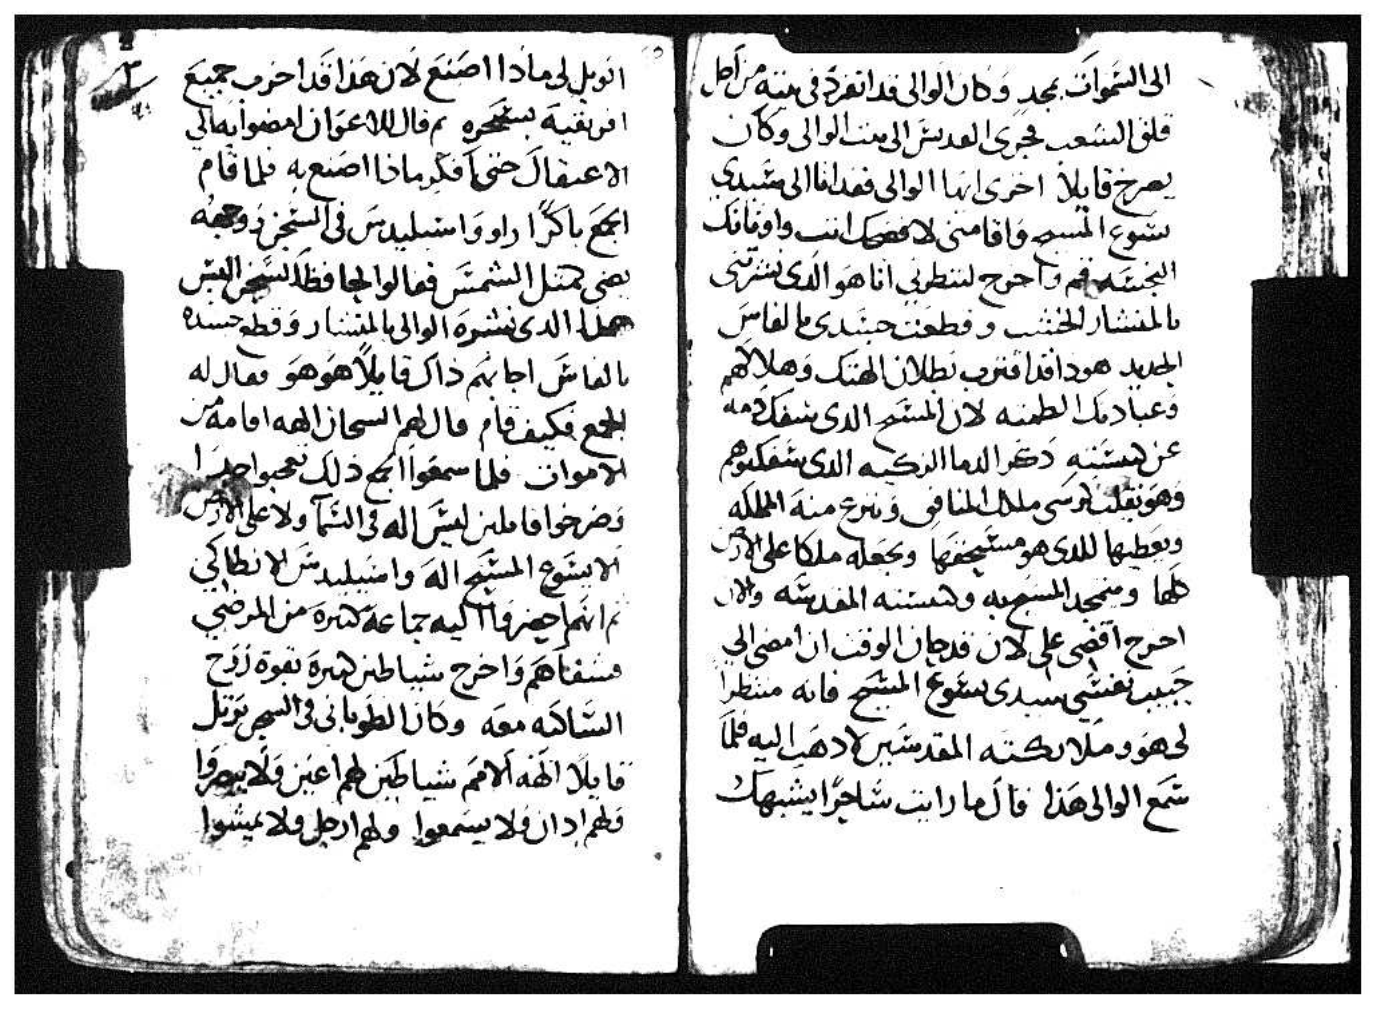 الى السموات بمجد وكان الوالى قد انفرد فى بيته من اجل
قلق الشعب فجرى القديس الى بيت الوالى وكان
يصرخ قايلاً اخرى ايها الوالى فقد اتا الى سيدي
يسوع المسيح واقامنى لافضحك انت واوثانك
النجسه فقم واخرج لتنظرني انا هو الذى نشرتنى
بالمنشار الخشب وقطعت جسدى بالفاس
الحديد هودا قد اقترب بطلان الهتك وهلاكهم
وعبادتك الطمثه لان المسيح الدى سفك دمه
عن كنيسته ذكر الدما الزكيه الدى سفكتوهم
وهو يقلب كرسى ملكك المنافق وينزع منه المملكه
ويعطيها للدى هو مستحقها ويجعله ملكا على الارض
كلها ويتمجد المسيح به وكنيسته المقدسه والان
اخرج اقضى على لان قد حان الوقت ان امضى الى
حبيب نفسي سيدى يسوع المسيح فانه منتظراً
لى هو وملايكته المقدسين لادهب اليه فلما
سمع الوالى هذا قال ما رايت ساحرًا يشبهك
الويل لى ماذا اصنع لان هذا قد اخرب جميع
افريقية بسحره ثم قال للاعوان امضوا به الي
الاعتقال حتى افكر ماذا اصنع به فلما قام
الجمع باكرًا راو واسيليدس فى السجن ووجهه
يضى كمثل الشمس فقالوا لحافظ السجن اليس
هدا الدى نشره الوالى بالمنشار وقطع جسده
بالفاس اجابهم ذاك قايلاً هو هو فقال له
الجمع فكيف قام قال لهم السجان الهه اقامه من
الاموات فلما سمعوا الجمع ذلك تعجبوا جدا
وصرخوا قايلين ليس اله فى السمآ ولا على الارض
الا يسوع المسيح اله واسيليدس الانطاكي
ثم انهم احضروا اليه جماعة كثيرة من المرضي
فشفاهم واخرج شياطين كثيرة بقوة روح
الساكنه معه وكان الطوبانى فى السجن يرتل
قايلاً الهة الامم شياطين لهم اعين ولا يبصروا
ولهم ادان ولا يسمعوا ولهم ارجل ولا يمشوا